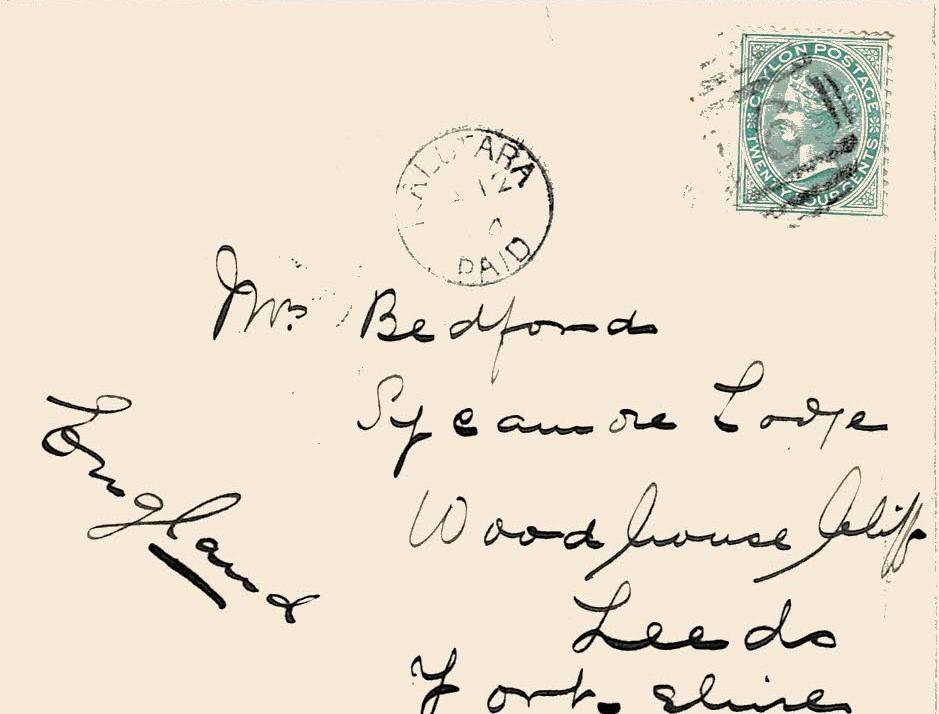 CEYLON POSTAGE
TWENTY FOUR CENTS
KALUTARA
PAID
Mrs Bedford
Sycamore Lodge
Woodhouse Cliff
Leeds
York-shire
England